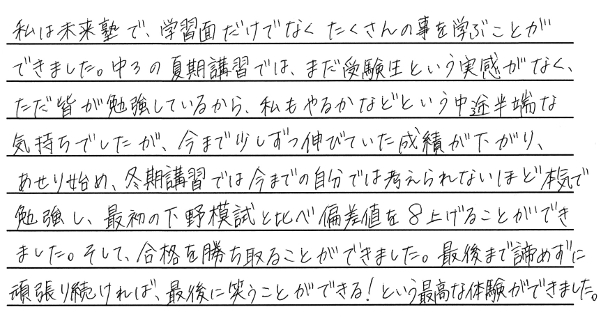 私は未来塾で、学習面だけでなくたくさんの事を学ぶことが
できました。中3の夏期講習では、まだ受験生という実感がなく、
ただ皆が勉強しているから、私もやるかなどという中途半端な
気持ちでしたが、今まで少しずつ伸びていた成績が下がり、
あせり始め、冬期講習では今までの自分では考えられないほど本気で
勉強し、最初の下野模試と比べ偏差値を8上げることができ
ました。そして、合格を勝ち取ることができました。最後まで諦めずに
頑張り続ければ、最後に笑うことができる!という最高な体験ができました。